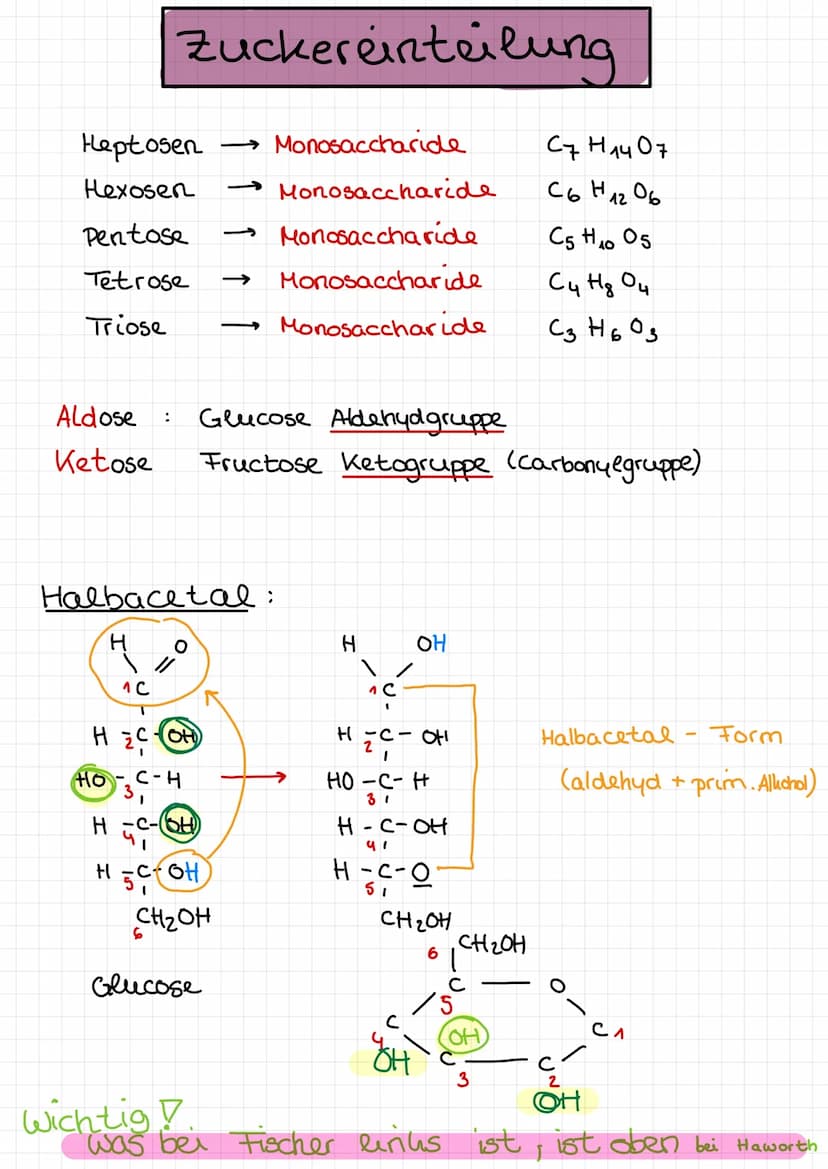 Zuckereinteilung
Heptosen → Monosaccharide C7 H14 O7
Hexosen → Monosaccharide C6 H12 O6
Pentose → Monosaccharide C5 H10 O5
Tetrose → Monosaccharide C4 H8 O4
Triose → Monosaccharide C3 H6 O3
Aldose : Glucose Aldehydgruppe
Ketose Fructose Ketogruppe (Carbonylgruppe)
Halbacetal:
H O
1 C
H - C - OH
2
HO - C - H
3
H - C - OH
4
H - C - OH
5
CH2OH
6
Glucose
H OH
1 C
H - C - OH
2
HO - C - H
3
H - C - OH
4
H - C - O
5
CH2OH
6
Halbacetal - Form
(aldehyd + prim. Alkohol)
CH2OH
C O
5
C OH C 1
4
OH C C
3 2
OH
Wichtig!
was bei Fischer links ist, ist oben bei Haworth